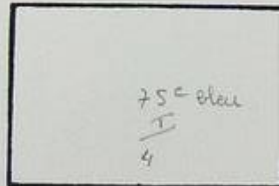 75c bleu
T
4